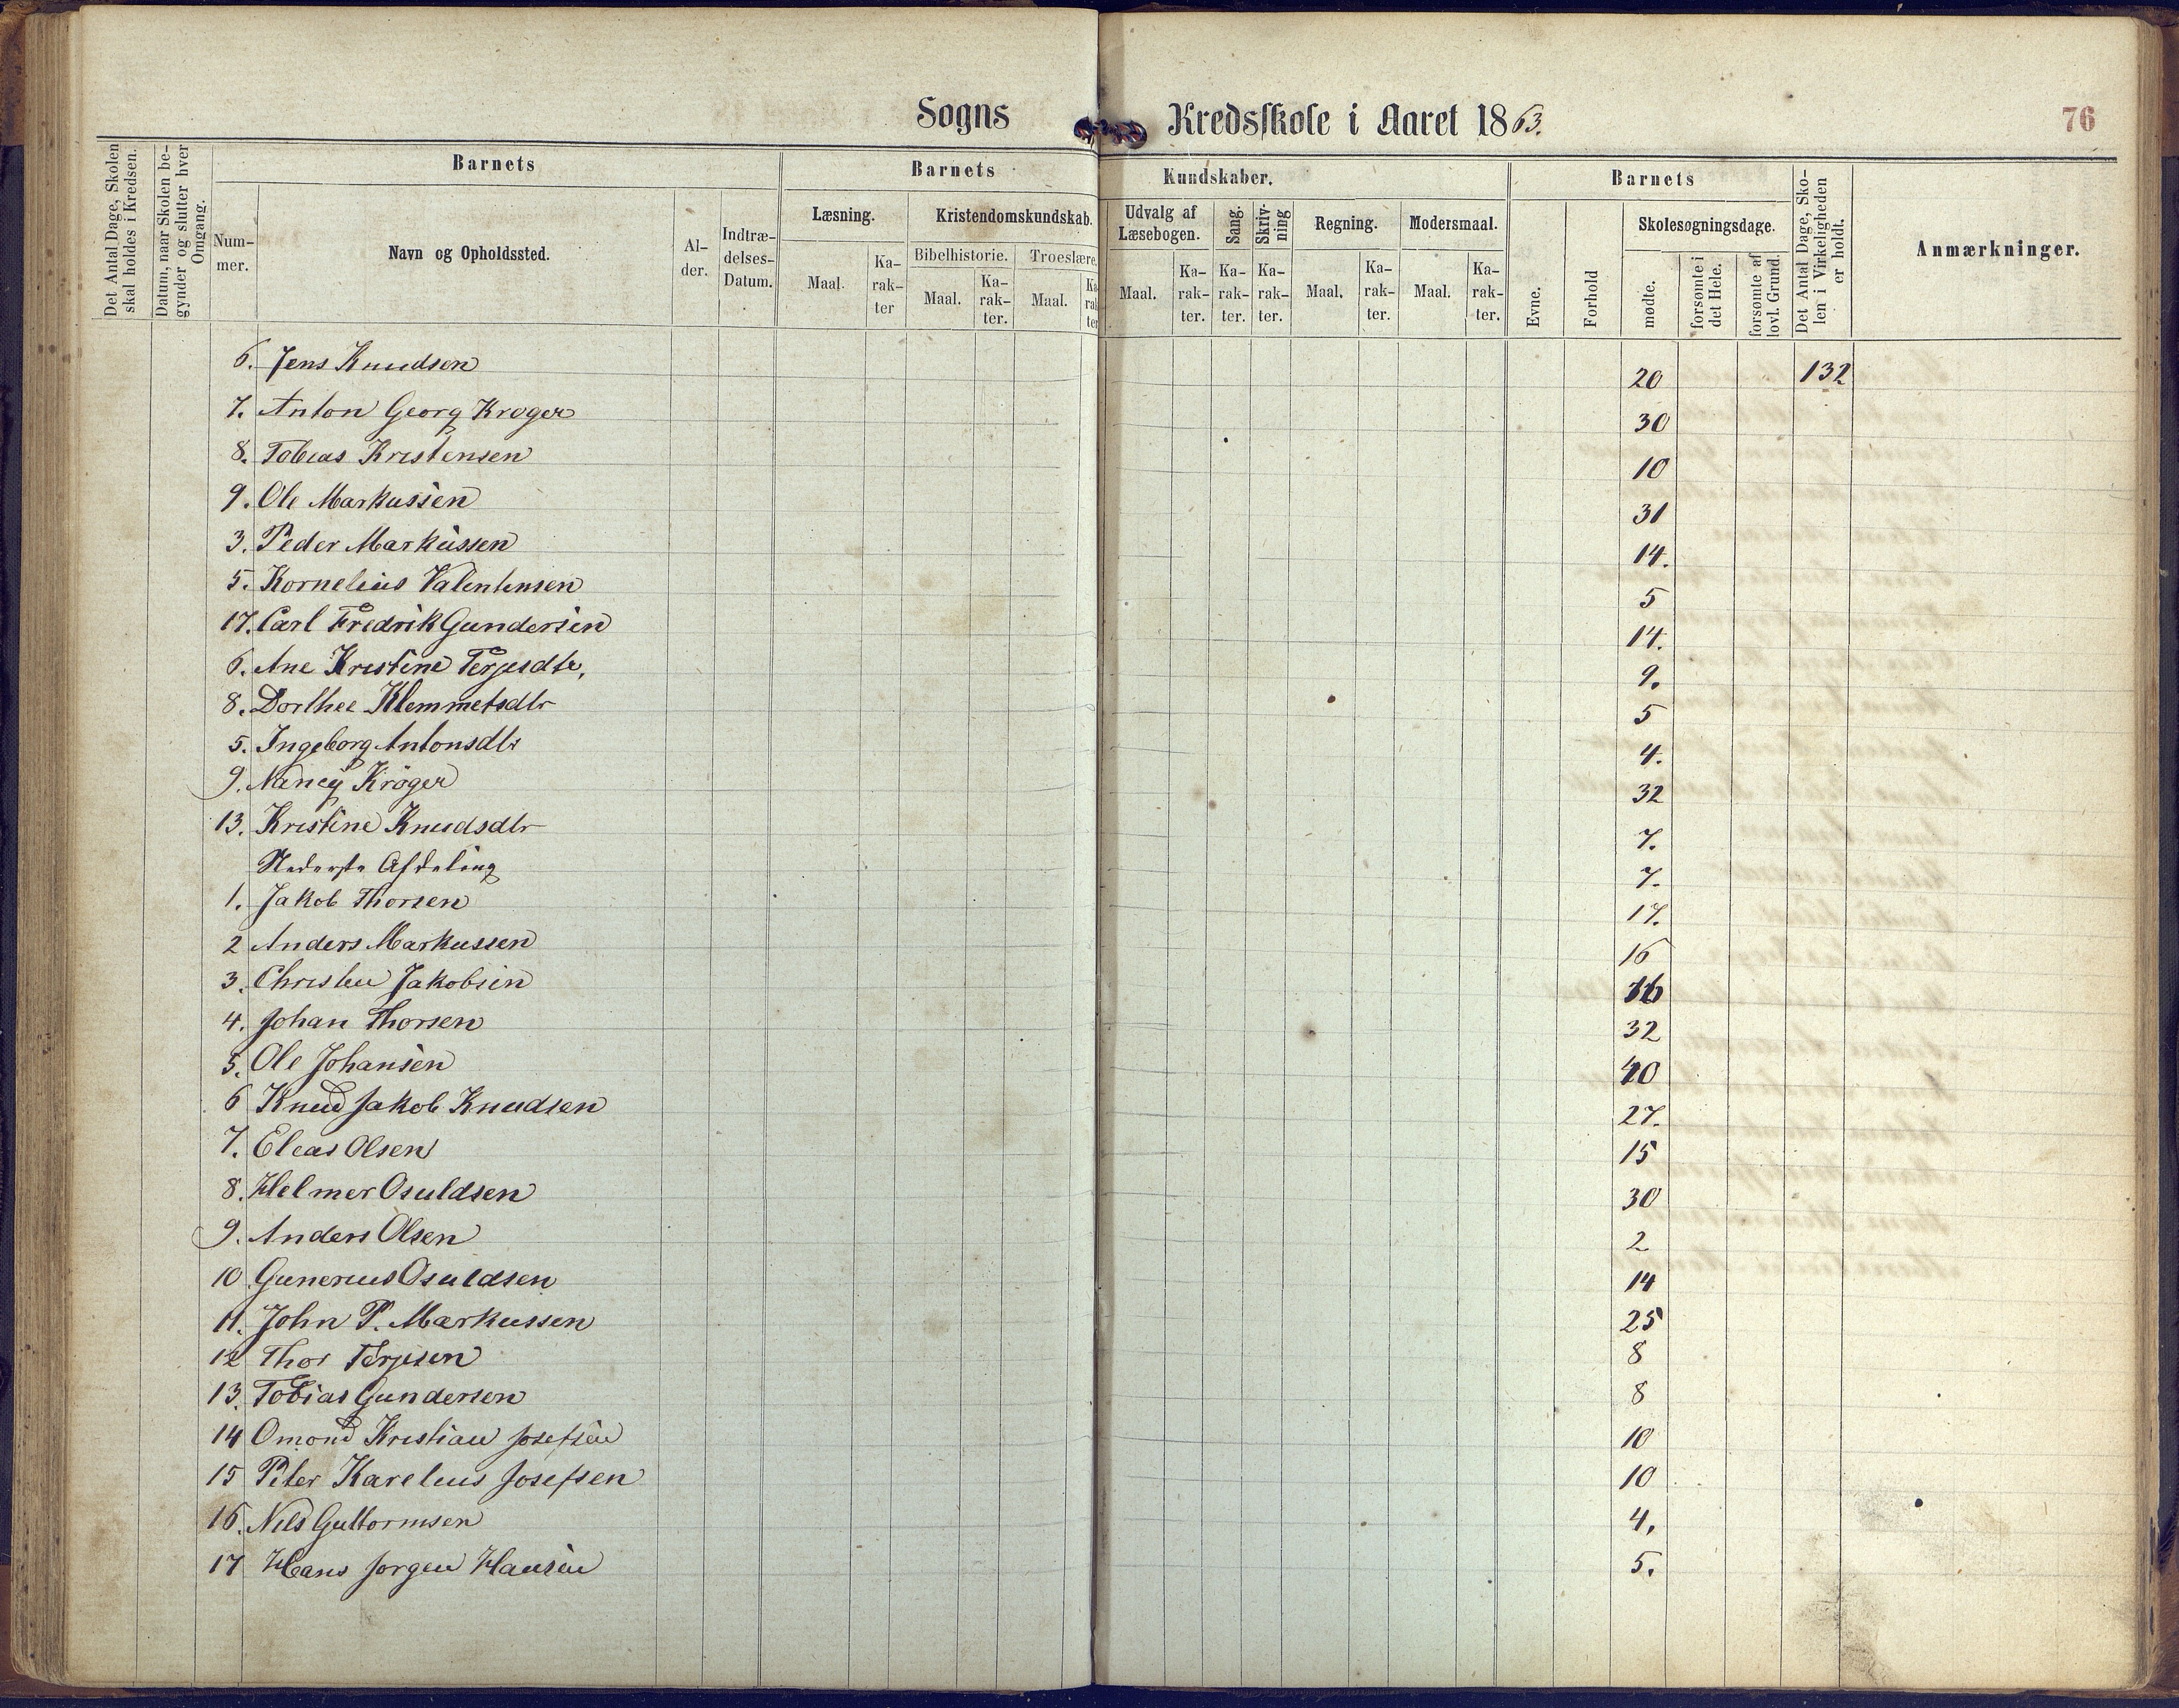 Sogns Kredsskole i Aaret 1863.
76
Det Antal Dage, Skolen skal holdes i Kredsen.
Datum, naar Skolen begynder og slutter hver Omgang.
Barnets
Nummer.
Navn og Opholdssted.
Alder.
Indtrædelses-Datum.
Barnets Kundskaber.
Læsning.
Maal.
Karakter
Kristendomskundskab.
Bibelhistorie.
Maal.
Karakter.
Troeslære.
Maal.
Karakter
Udvalg af Læsebogen.
Maal.
Karakter.
Sang.
Karakter.
Skrivning
Karakter.
Regning.
Maal.
Karakter.
Modersmaal.
Maal.
Karakter.
Barnets
Evne.
Forhold
Skolesøgningsdage.
mødte.
forsømte i det Hele.
forsømte af lovl. Grund.
Det Antal Dage, Skolen i Virkeligheden er holdt.
Anmærkninger.
6. Jens Knudsen 20 132
7. Anton Georg Krøger 30
8. Tobias Kristensen 10
9. Ole Markussen 31
3. Peder Markussen 14.
5. Kornelius Valentinsen 5
17. Carl Fredrik Gundersen 14.
6. Ane Kristine Terjesdtr. 9.
8. Dorthee Klemmetsdtr 5
5. Ingeborg Antonsdtr 4.
9. Nancy Krøger 32
13. Kristine Knudsdtr 7.
Nederste Afdeling 7.
1. Jakob Thorsen 17.
2 Anders Markussen 16
3. Christen Jakobsen 16
4. Johan Thorsen 32
5. Ole Johansen 40
6 Knud Jakob Knudsen 27.
7. Elias Olsen 15
8. Helmer Osuldsen 30
9. Anders Olsen 2
10 Gunerius Osuldsen 14
11. John P. Markussen 25
12 Thor Terjesen 8
13. Tobias Gundersen 8
14 Omond Kristian Josefsen 10
15 Peter Karelius Josefsen 10
16. Nils Guttormsen 4.
17 Hans Jørgen Hansen 5.